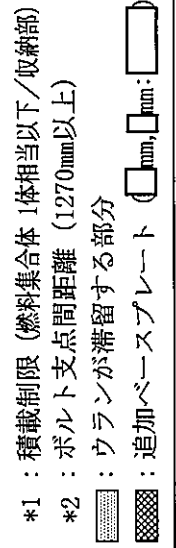 *1 : 積載制限 (燃料集合体 1体相当以下/収納部)
*2 : ボルト支点間距離 (1270mm以上)
: ウランが滞留する部分
: 追加ベースプレート ( mm, mm: )